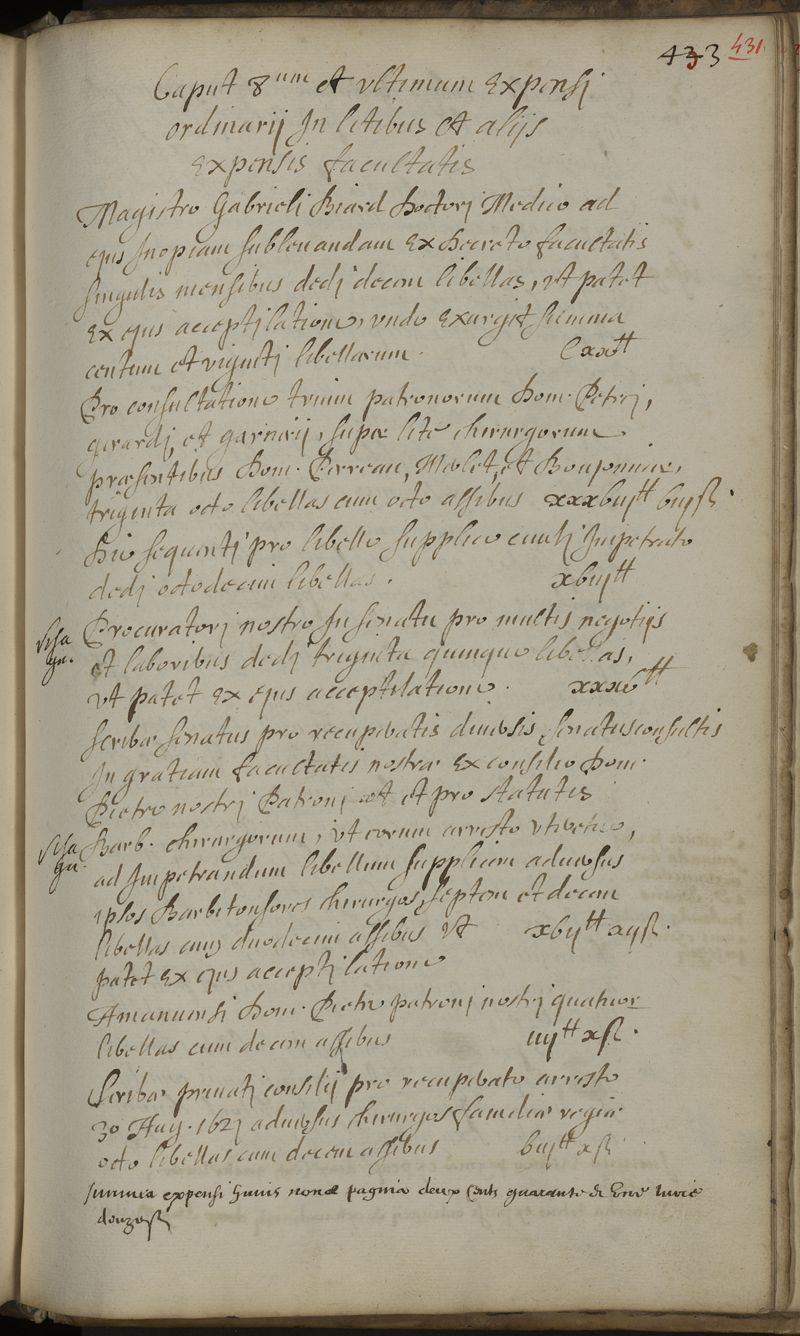 433 431
Caput 8um et vltimum Expensj
ordinarij In litibus et alijs
Expensis facultatis
Magistro Gabrieli Biard Doctorj Medico ad
ejus Inopiam subleuandam Ex Decreto facultatis
singulis mensibus dedj decem libellas, vt patet
Ex ejus acceptilatione, vnde Exurgit summa
centum et vigintj libellarum. Cxxtt
Pro consultatione trium patronorum Dom. Petrej,
girardj, et garnerij, supe lite chirurgorum
præsentibus Dom. Perreau, Molet, et Bonjonnier,
triginta octo libellas cum octo assibus xxxbiijtt biijs.
Die sequentj pro libello supplice Impetrato
dedj octodecim libellas. xbiijtt
Procuratorj nostro In senatu pro multis negotijs
et laboribus dedj triginta quinque libellas,
vt patet ex ejus acceptilatione. xxxbtt
scribæ senatus pro recuperatis diuersis senatusconsultis
In gratiam facultatis nostræ Ex consilio Dom.
Pietre nostrj Patronj et pro statutis
Barb. chirurgorum, vt eorum arresto,
ad Impetrandum libellum supplicem aduersus
ipsos Barbitonsores chirurgos, septem et decem
libellas cum duodecim assibus vt xbijtt xijs.
patet Ex ejus acceptilatione
Amanuensi Dom. Pietre patronj nostrj quatuor
libellas cum decem assibus iiijtt xs.
Scribæ priuatj consilij pro recuperato arresto
30 Aug. 1621 aduersus chirurgos familiæ regiæ
octo libellas cum decem assibus biijtt xs
summa expensi huius nonæ paginæ deux Cents quarante
douze s